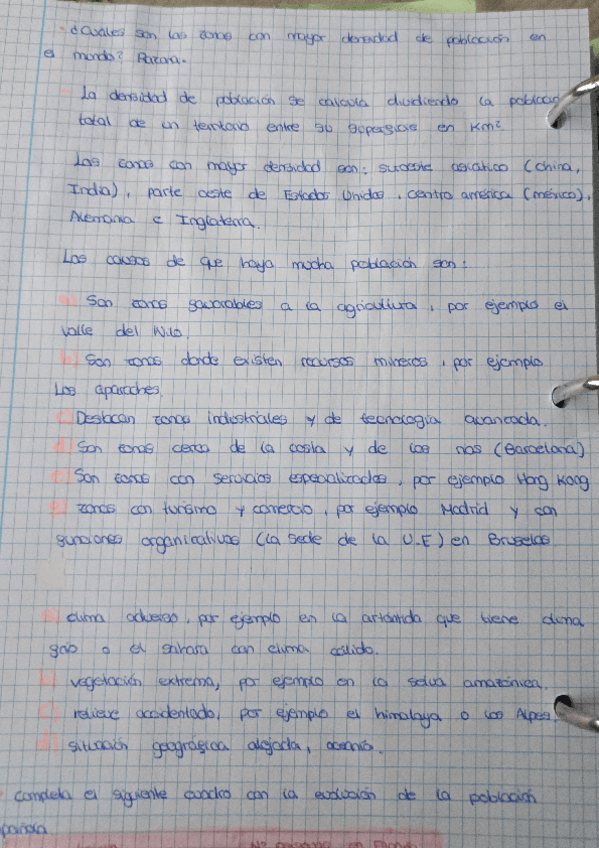 ¿Cuáles son las zonas con mayor densidad de población en
el mundo? Razona.
La densidad de población se calcula dividiendo la población
total de un territorio entre su superficie en Km²
Las zonas con mayor densidad son: sureste asiático (China,
India), parte oeste de Estados Unidos, centro américa (méxico),
Alemania e Inglaterra.
Las causas de que haya mucha población son:
a) Son zonas favorables a la agricultura, por ejemplo el
valle del Nilo.
b) Son zonas donde existen recursos mineros, por ejemplo
Los apalaches
c) Destacan zonas industriales y de tecnología avanzada.
d) Son zonas cerca de la costa y de los ríos (Barcelona)
e) Son zonas con servicios especializados, por ejemplo Hong Kong
f) zonas con turismo y comercio, por ejemplo Madrid y con
funciones organizativas (la sede de la U.E) en Bruselas
a) clima adverso, por ejemplo en la artántida que tiene clima
frío o el sahara con clima cálido.
b) vegetación extrema, por ejemplo en la selva amazónica.
c) relieve accidentado, por ejemplo el himalaya o los Alpes.
d) situación geográfica alejada, oceanía.
completa el siguiente cuadro con la evolución de la población
pañola